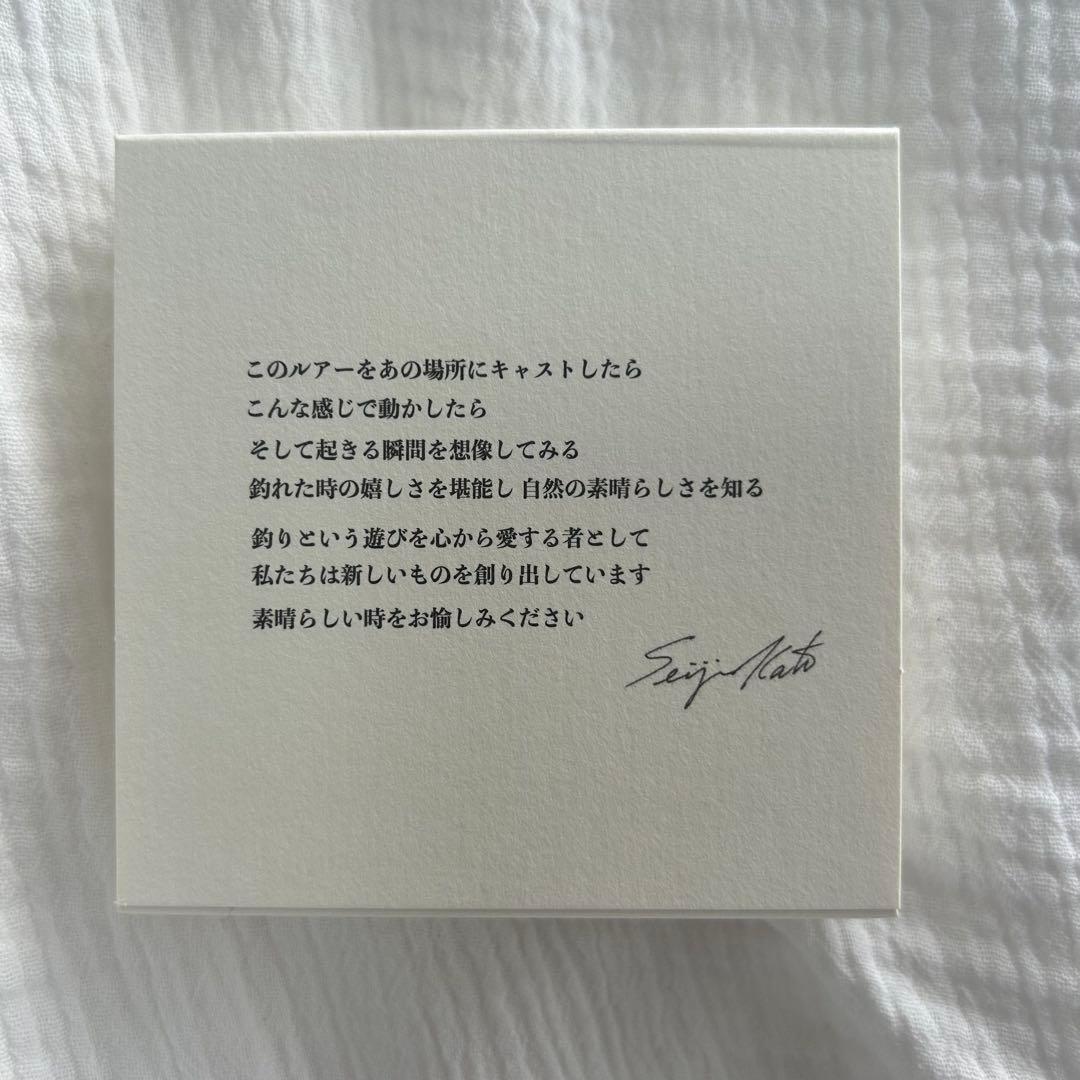 このルアーをあの場所にキャストしたら
こんな感じで動かしたら
そして起きる瞬間を想像してみる
釣れた時の嬉しさを堪能し 自然の素晴らしさを知る
釣りという遊びを心から愛する者として
私たちは新しいものを創り出しています
素晴らしい時をお愉しみください
Seiji Kato